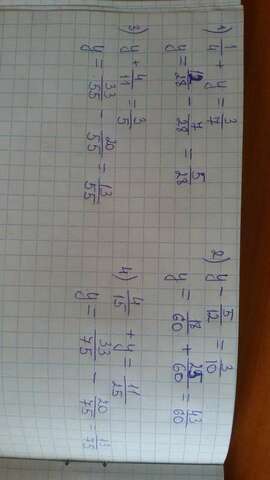 1) 1/4 + y = 3/7
y = 12/28 - 7/28 = 5/28
2) y - 5/12 = 3/10
y = 18/60 + 25/60 = 43/60
3) y + 4/11 = 3/5
y = 33/55 - 20/55 = 13/55
4) 4/15 + y = 11/25
y = 33/75 - 20/75 = 13/75